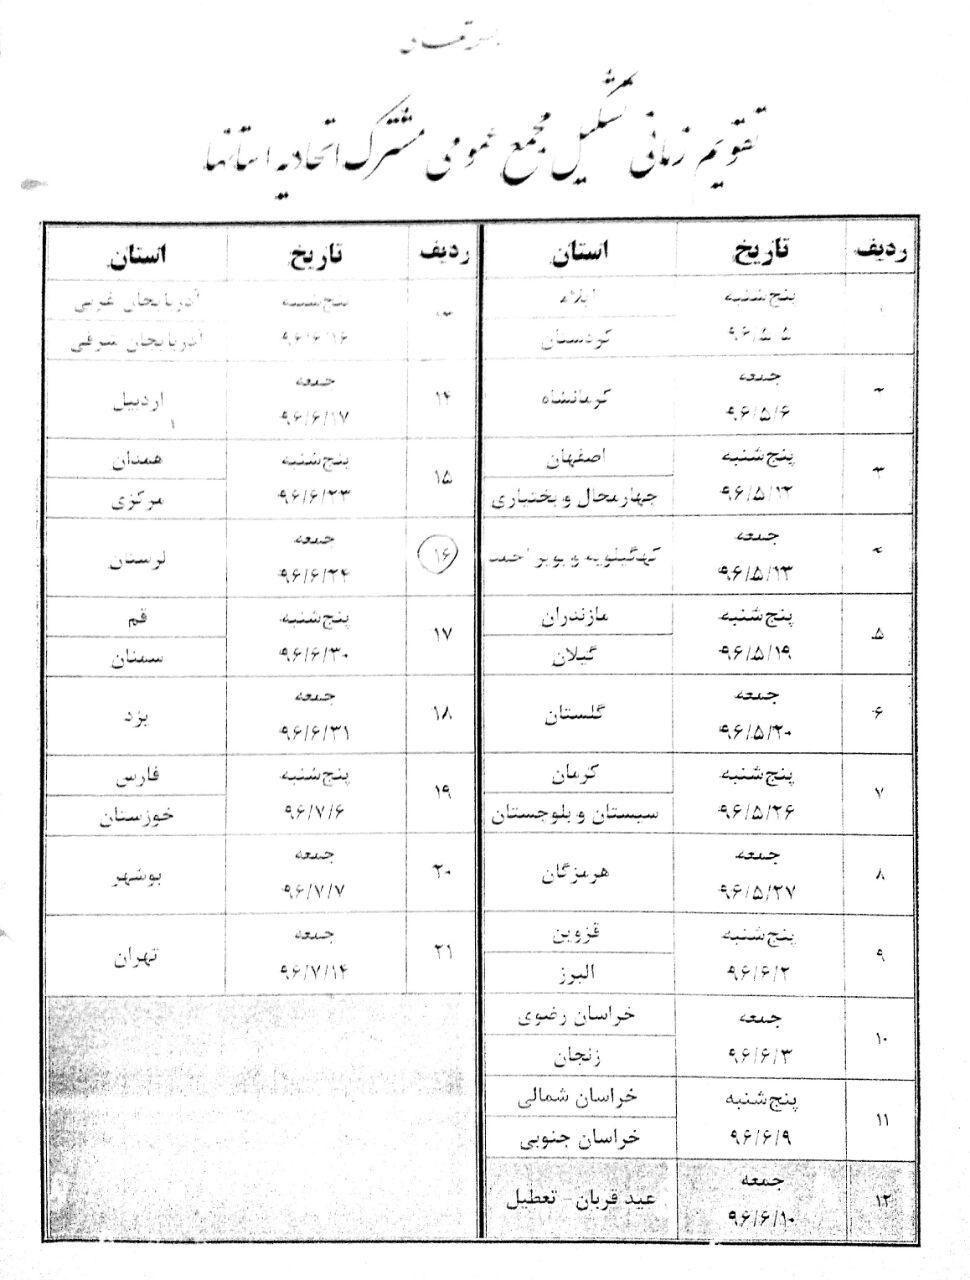 بسمه تعالی
تقویم زمانی تشکیل مجمع عمومی مشترک اتحادیه استانها
ردیف تاریخ استان
۱ پنج‌شنبه ۹۶/۵/۵ ایلام
کردستان
۲ جمعه ۹۶/۵/۶ کرمانشاه
۳ پنج‌شنبه ۹۶/۵/۱۲ اصفهان
چهارمحال و بختیاری
۴ جمعه ۹۶/۵/۱۳ کهگیلویه و بویر احمد
۵ پنج‌شنبه ۹۶/۵/۱۹ مازندران
گیلان
۶ جمعه ۹۶/۵/۲۰ گلستان
۷ پنج‌شنبه ۹۶/۵/۲۶ کرمان
سیستان و بلوچستان
۸ جمعه ۹۶/۵/۲۷ هرمزگان
۹ پنج‌شنبه ۹۶/۶/۲ قزوین
البرز
۱۰ جمعه ۹۶/۶/۳ خراسان رضوی
زنجان
۱۱ پنج‌شنبه ۹۶/۶/۹ خراسان شمالی
خراسان جنوبی
۱۲ جمعه ۹۶/۶/۱۰ عید قربان - تعطیل
ردیف تاریخ استان
۱۳ پنج‌شنبه ۹۶/۶/۱۶ آذربایجان غربی
آذربایجان شرقی
۱۴ جمعه ۹۶/۶/۱۷ اردبیل
۱۵ پنج‌شنبه ۹۶/۶/۲۳ همدان
مرکزی
۱۶ جمعه ۹۶/۶/۲۴ لرستان
۱۷ پنج‌شنبه ۹۶/۶/۳۰ قم
سمنان
۱۸ جمعه ۹۶/۶/۳۱ یزد
۱۹ پنج‌شنبه ۹۶/۷/۶ فارس
خوزستان
۲۰ جمعه ۹۶/۷/۷ بوشهر
۲۱ جمعه ۹۶/۷/۱۴ تهران